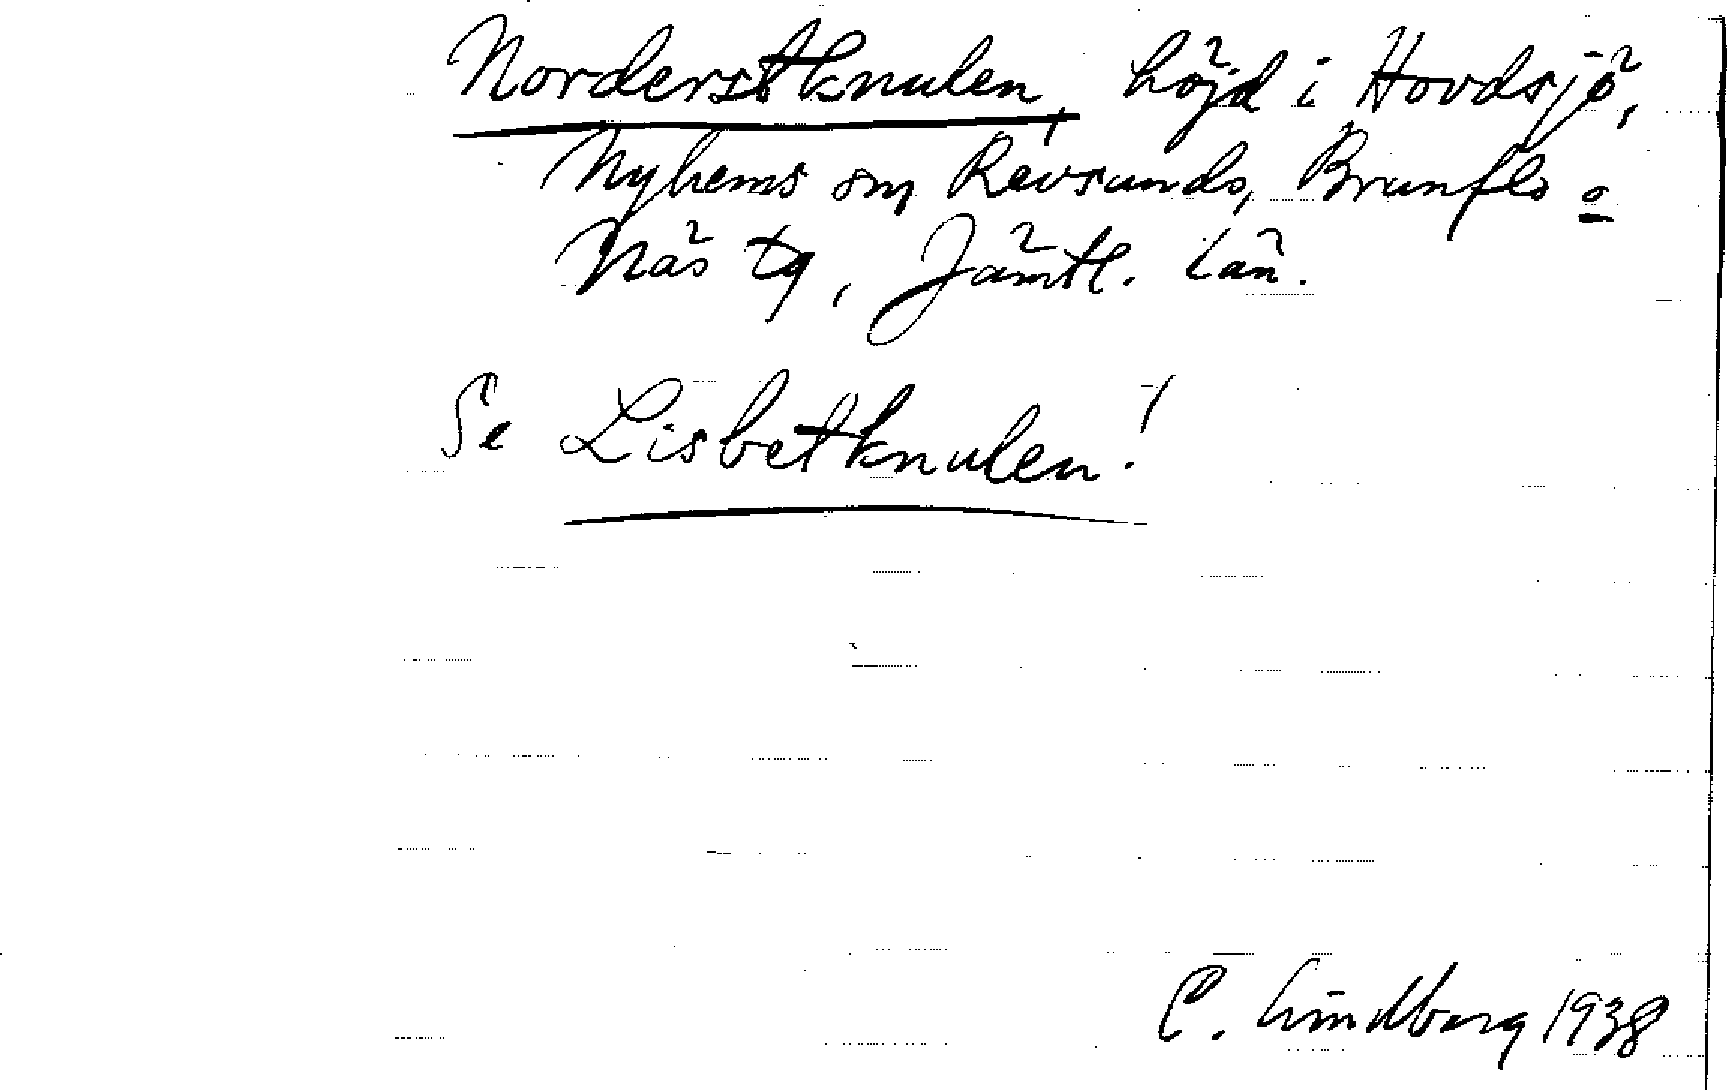 Norderstknulen, höjd i Hovdsjö,
Nyhems sn, Revsunds, Brunflo o
Näs tg, Jämtl. län.
Se Lisbetknulen!
C. Lindberg 1938